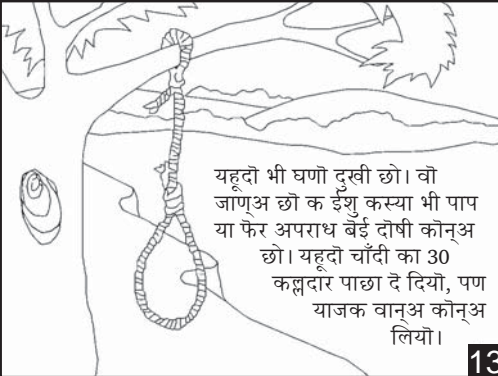 यहूदॊ भी घणॊ दुखी छो। वॊ
जाण्अ छॊ क ईशु कस्या भी पाप
या फेर अपराध बेई दॊषी कॊन्अ
छो। यहूदॊ चाँदी का 30
कल्लदार पाछा दॆ दियॊ, पण
याजक वान्अ कॊन्अ
लियॊ।
13